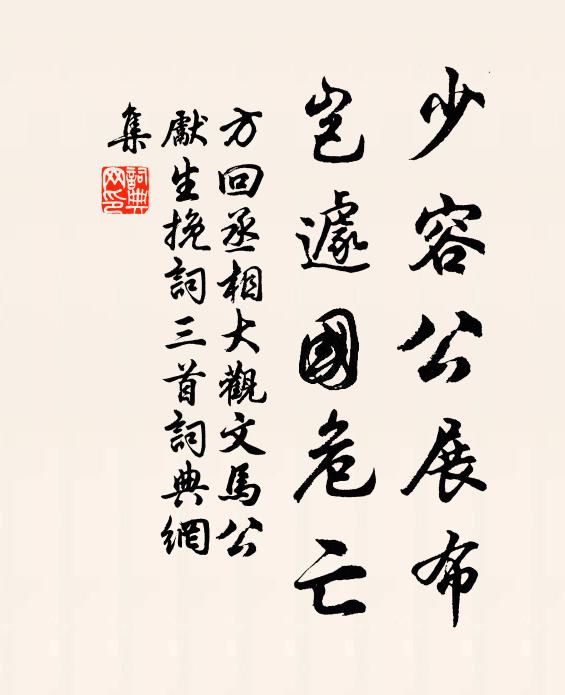 少容公展布
豈遽國危亡
方回丞相大觀文馬公
獻生挽詞三首詞典網
集
詞典
网印